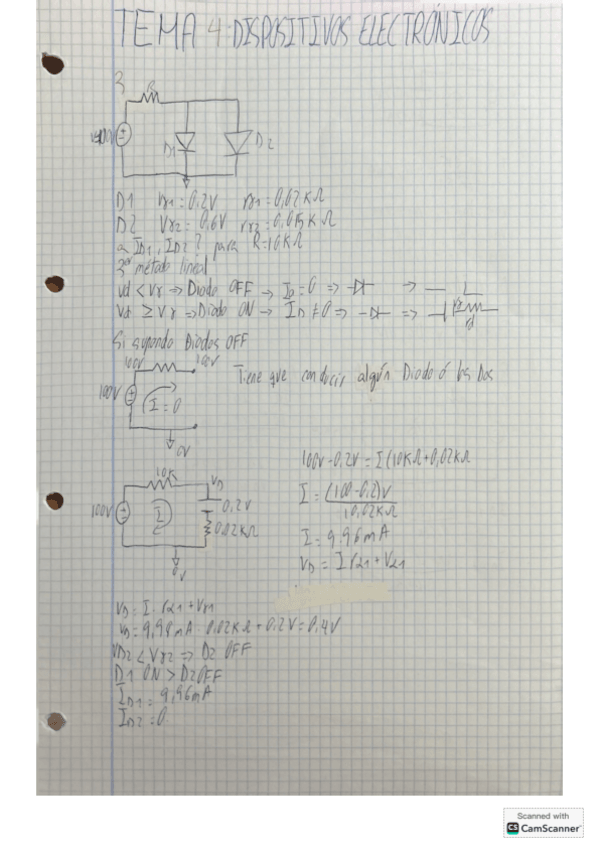 TEMA 4: DISPOSITIVOS ELECTRÓNICOS
3
R
100V
D1
D2
D1 Vγ1 = 0,2V rγ1 = 0,02KΩ
D2 Vγ2 = 0,6V rγ2 = 0,015KΩ
a ID1, ID2? para R=10KΩ
3er método lineal
Vd < Vγ ⇒ Diode OFF → ID=0 ⇒ →
Vd ≥ Vγ ⇒ Diodo ON → ID≠0 ⇒ ⇒ Vγ rd
Si supondo Diodos OFF
100V 100V
Tiene que conducir algún Diodo ó los Dos
100V
I=0
0V
10K VD
100V
I
0,2V
0,02KΩ
0V
100V-0.2V = I(10KΩ+0,02KΩ
I = (100-0,2)V
10,02KΩ
I = 9,96mA
VD = I rd1 + Vd1
VD = I · rd1 + Vγ1
VD = 9,98mA · 0,02KΩ + 0,2V = 0,4V
VD2 < Vγ2 ⇒ D2 OFF
D1 ON > D2OFF
ID1 = 9,96mA
ID2 = 0
Scanned with
CS CamScanner